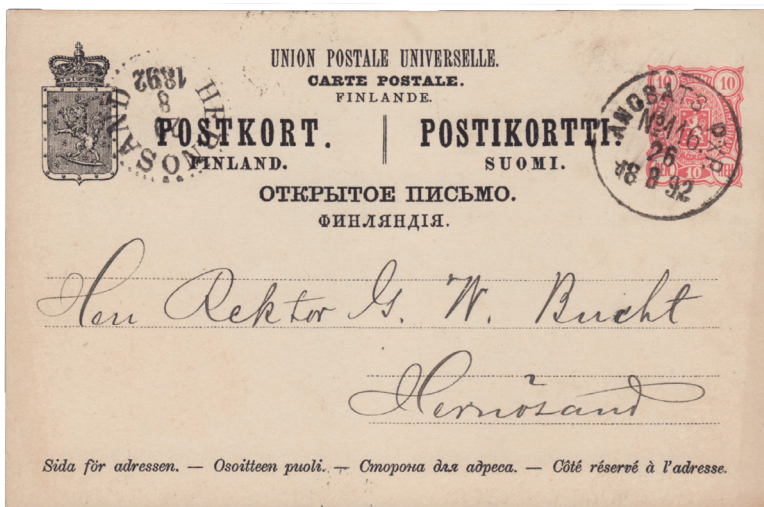 UNION POSTALE UNIVERSELLE.
CARTE POSTALE.
FINLANDE.
POSTKORT. POSTIKORTTI.
FINLAND. SUOMI.
ОТКРЫТОЕ ПИСЬМО.
ФИНЛЯНДІЯ.
HERNÖSAND
8
1892
10 10
10
ÅNGBÅTS PXP.
No 116.
26
18 8 92
Herr Rektor G. W. Bucht
Hernösand
Sida för adressen. — Osoitteen puoli. — Сторона для адреса. — Côté réservé à l'adresse.